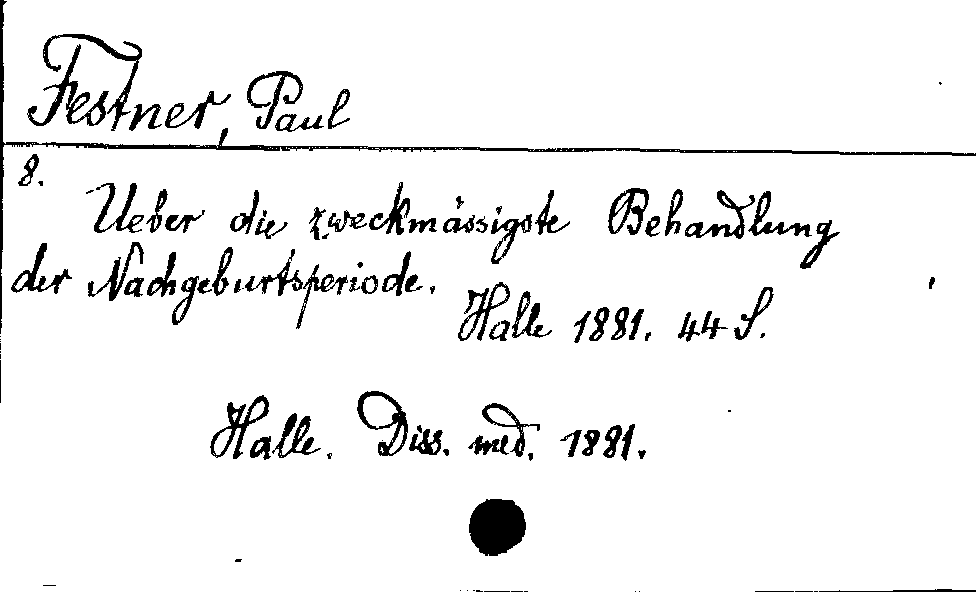 Festner, Paul
8.
Ueber die zweckmässigste Behandlung
der Nachgeburtsperiode.
Halle 1881. 44 S.
Halle. Diss. med. 1881.